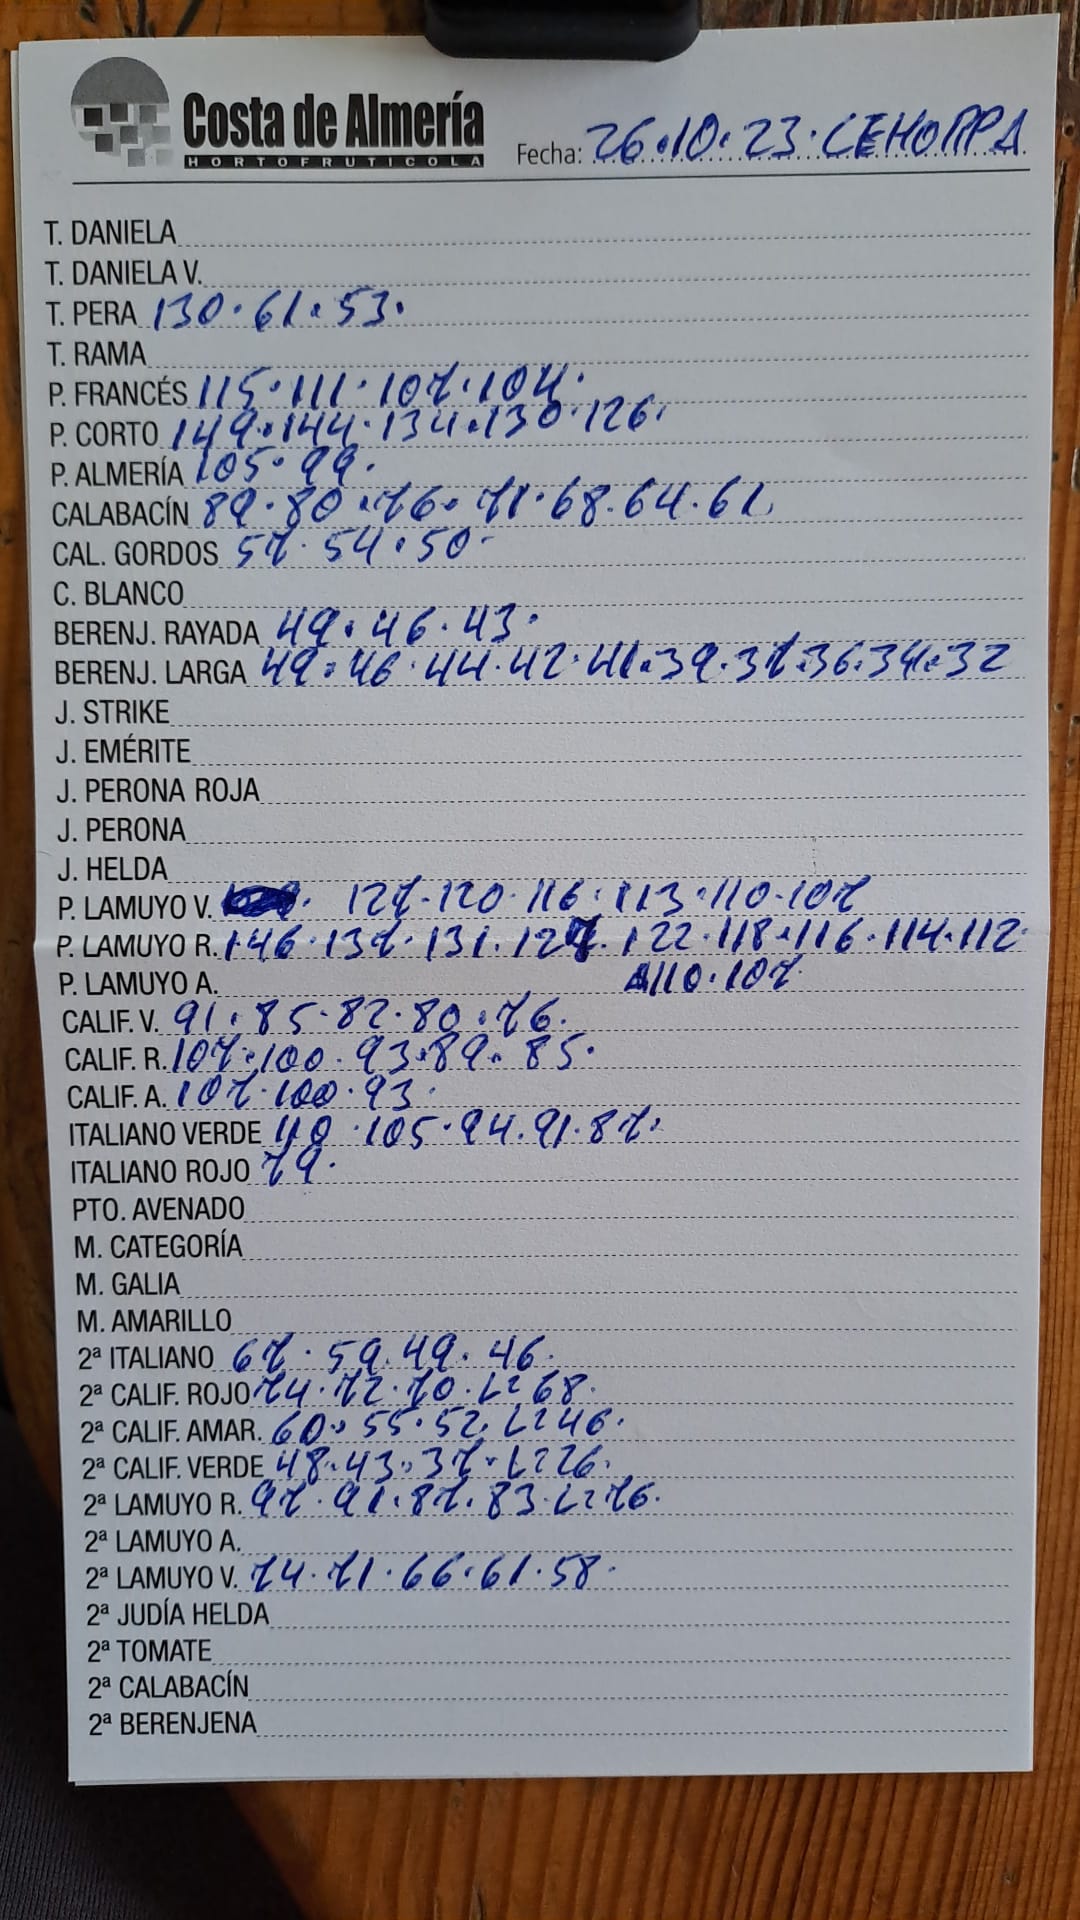 Costa de Almería
HORTOFRUTICOLA
Fecha: 26.10.23. CEHORPA
T. DANIELA
T. DANIELA V.
T. PERA 130.61.53.
T. RAMA
P. FRANCÉS 115.111.107.104.
P. CORTO 149.144.134.130.126.
P. ALMERÍA 105.99.
CALABACÍN 89.80.76.71.68.64.61.
CAL. GORDOS 57.54.50.
C. BLANCO
BERENJ. RAYADA 49.46.43.
BERENJ. LARGA 49.46.44.42.41.39.37.36.34.32
J. STRIKE
J. EMÉRITE
J. PERONA ROJA
J. PERONA
J. HELDA
P. LAMUYO V. 127.120.116.113.110.107
P. LAMUYO R. 146.137.131.127.122.118.116.114.112.
P. LAMUYO A. 110.107.
CALIF. V. 91.85.82.80.76.
CALIF. R. 107.100.93.89.85.
CALIF. A. 107.100.93.
ITALIANO VERDE 110.105.94.91.87.
ITALIANO ROJO 79.
PTO. AVENADO
M. CATEGORÍA
M. GALIA
M. AMARILLO
2ª ITALIANO 67.59.49.46.
2ª CALIF. ROJO 74.72.70.L=68.
2ª CALIF. AMAR. 60.55.52.L=46.
2ª CALIF. VERDE 48.43.37.L=26.
2ª LAMUYO R. 97.91.87.83.L=76.
2ª LAMUYO A.
2ª LAMUYO V. 74.71.66.61.58.
2ª JUDÍA HELDA
2ª TOMATE
2ª CALABACÍN
2ª BERENJENA